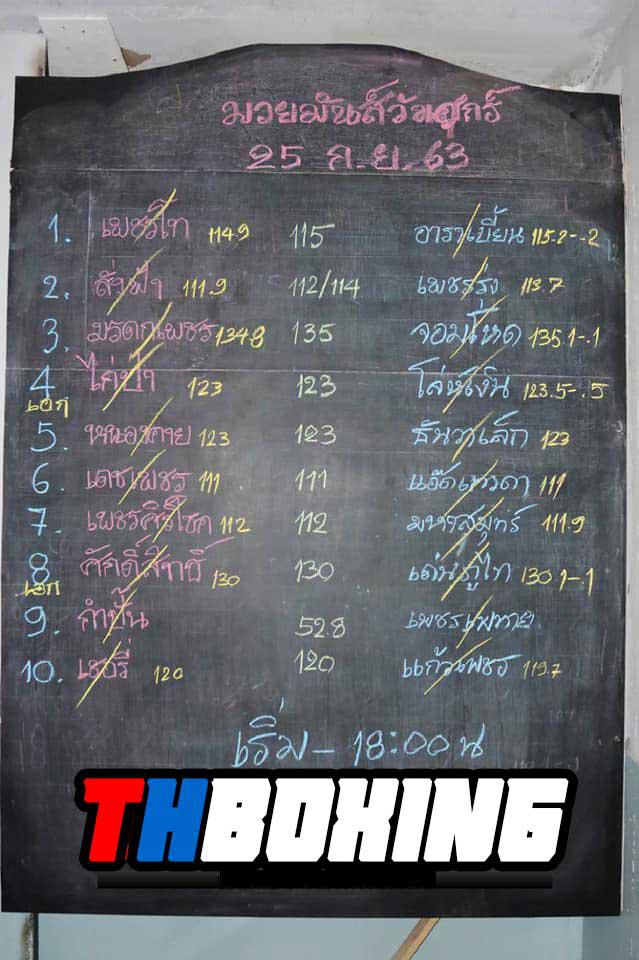 มวยมันส์วันศุกร์
25 ก.ย. 63
1. เพชรโท 114.9 115 อาราเบี้ยน 115.2-.2
2. สั่งฟ้า 111.9 112/114 เพชรรุ่ง 113.7
3. มรดกเพชร 134.8 135 จอมโหด 135.1-.1
4 ไก่ป่า 123 123 โล่ห์เงิน 123.5-.5
เอก
5. หนองคาย 123 123 ธันวาเล็ก 123
6. เดชเพชร 111 111 แอ๊ดเทวดา 111
7. เพชรศิริโชค 112 112 มหาสมุทร์ 111.9
8 ศักดิ์สิทธิ์ 130 130 เด่นภูไท 130.1-.1
เอก
9. กำปั้น 52.8 เพชรเพทาย
10. เชอรี่ 120 120 แก้วเพชร 119.7
เริ่ม - 18:00 น
THBOXING